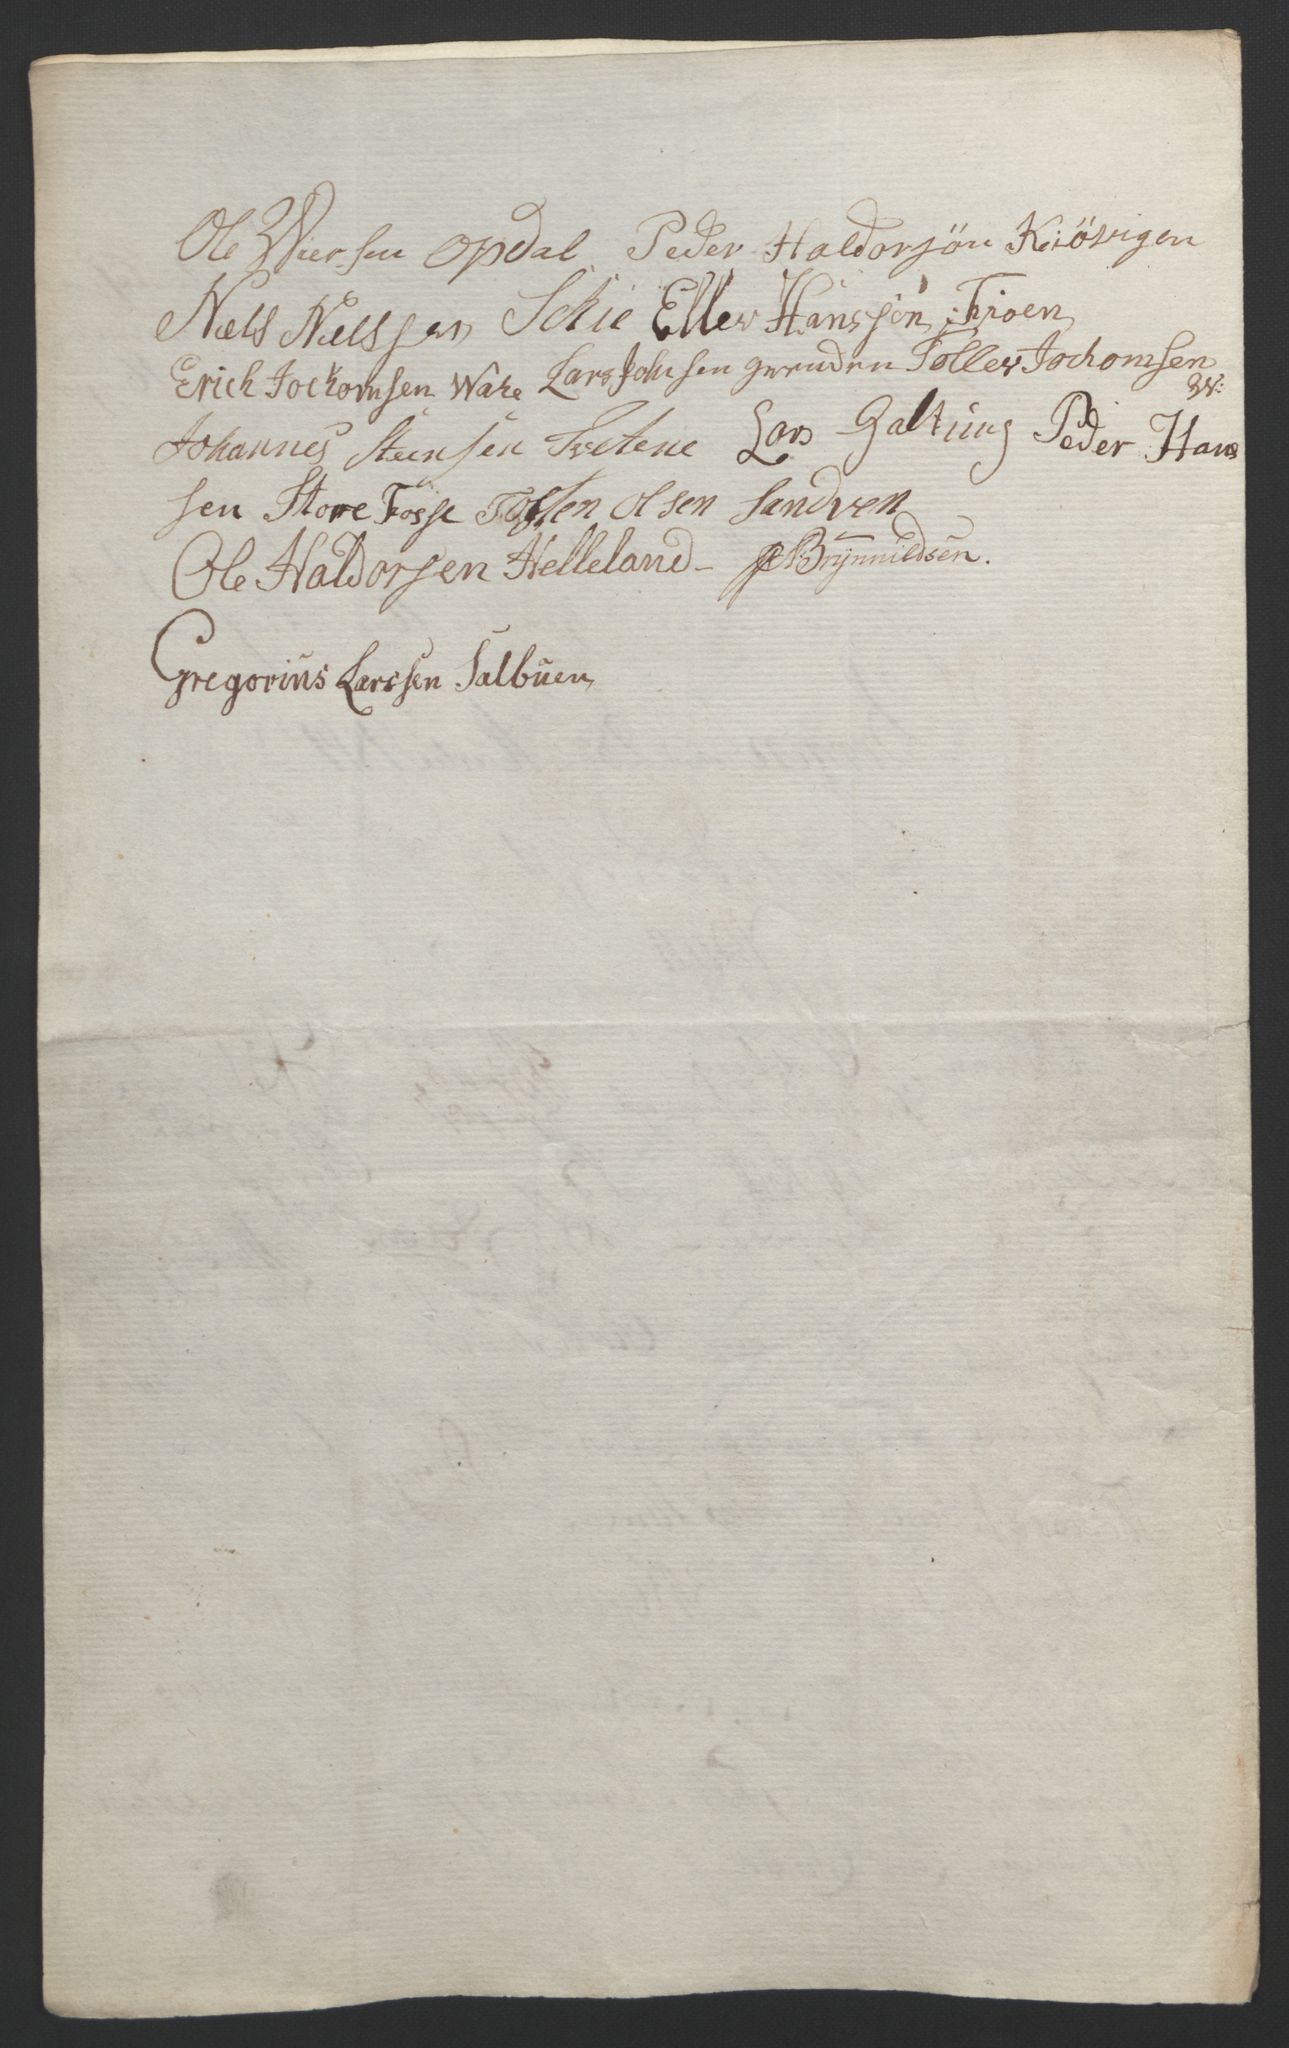 Ole Wiersen Opdal Peder Haldorsön Kiösvigen
Næls Nælssen Schie Eller Hansson Tioen
Erich Jochomsen Wahe Lars Johnsen Toller Jochomsen
W:
Johannes Steensen Tvetene Lars Galtung Peder Hans
sen Store Fosse Tosten Olsen Sandven
Ole Haldorsen Helleland - Brynnildsen.
Gregorius Larssen Salbuen